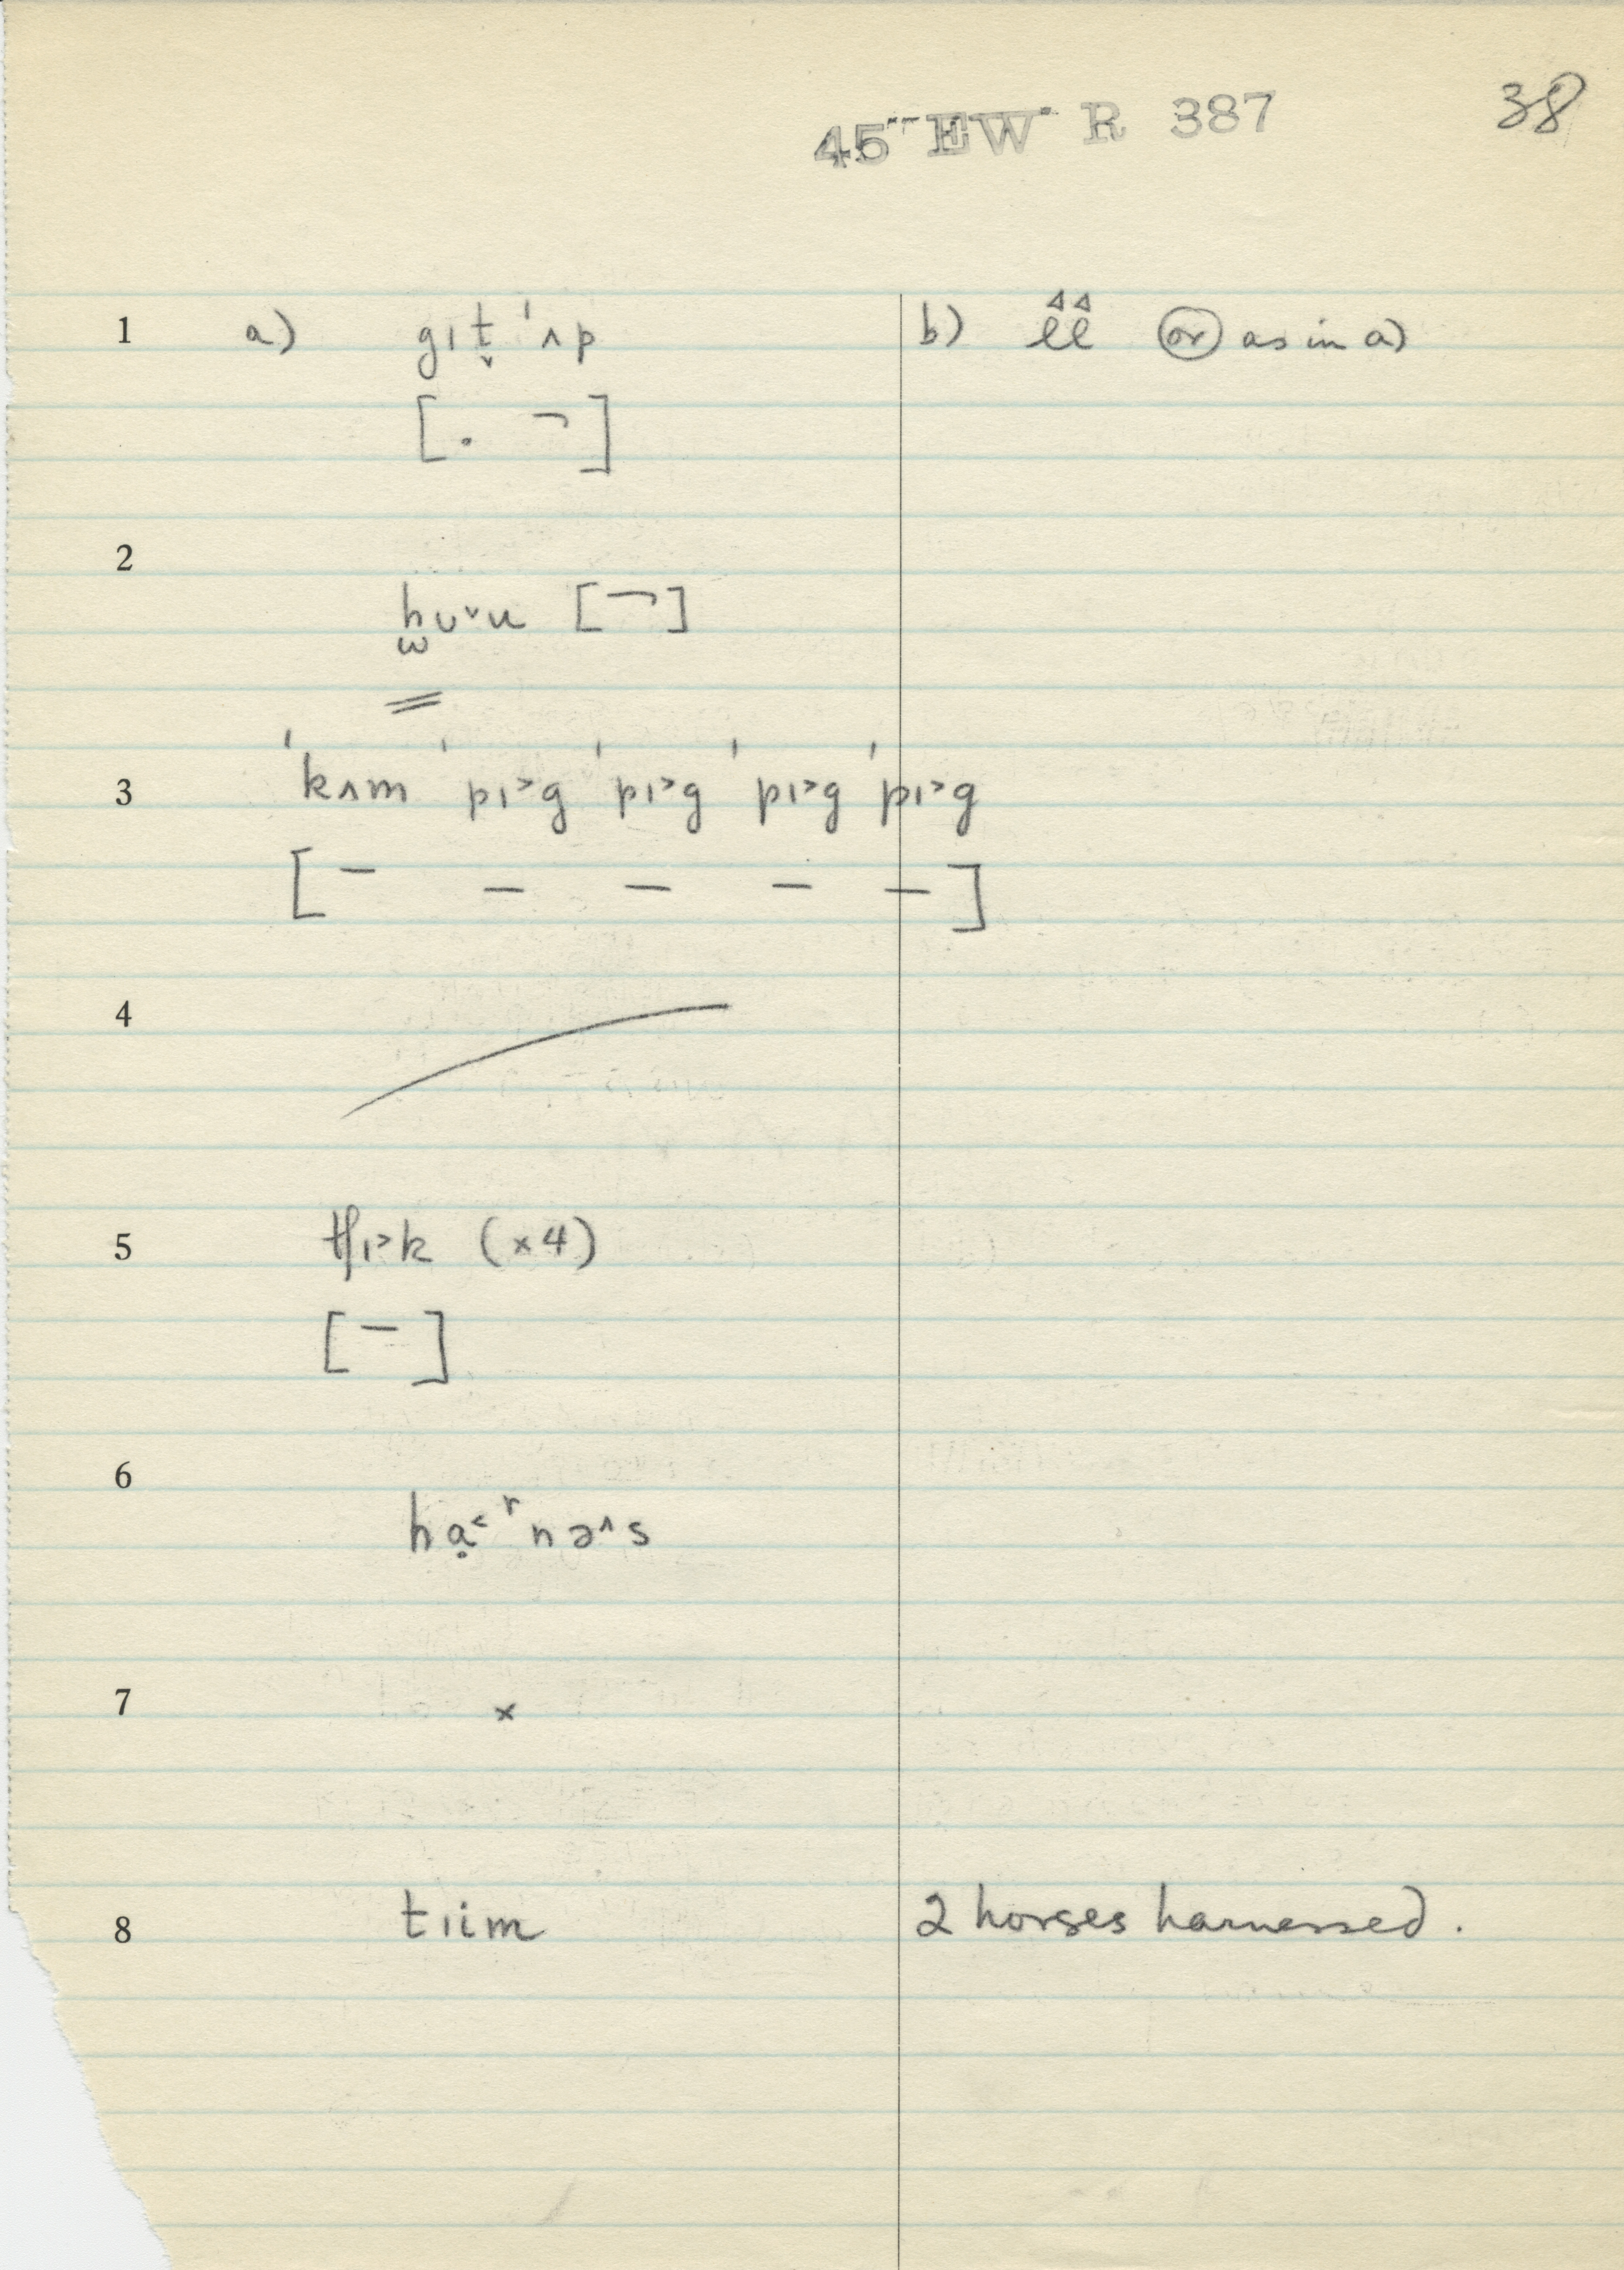 45 EW R 387 38
1 a) gɪt̬ ˈʌp b) or as in a)
[. ¬]
2
hʊ˅u [¬]
3 ˈkʌm ˈpɪ˃g ˈpɪ˃g ˈpɪ˃g ˈpɪ˃g
[– – – – –]
4
5 tʃɪ˃k (×4)
[–]
6
hạ˂ʳnə˄s
7 ×
8 tɪim 2 horses harnessed.